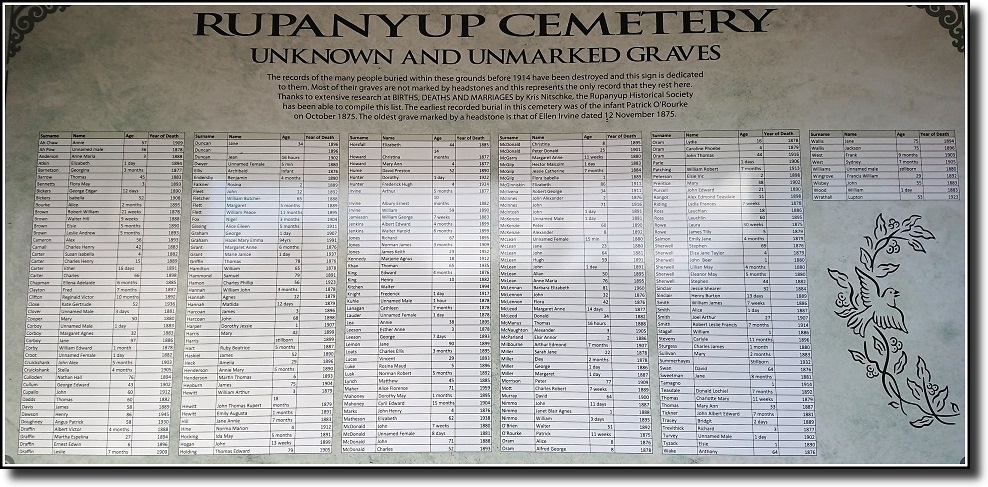 RUPANYUP CEMETERY
UNKNOWN AND UNMARKED GRAVES
The records of the many people buried within these grounds before 1914 have been destroyed and this sign is dedicated
to them. Most of their graves are not marked by headstones and this represents the only record that they rest here.
Thanks to extensive research at BIRTHS, DEATHS AND MARRIAGES by Kris Nitschke, the Rupanyup Historical Society
has been able to compile this list. The earliest recorded burial in this cemetery was of the infant Patrick O'Rourke
on October 1875. The oldest grave marked by a headstone is that of Ellen Irvine dated 12 November 1875.
Surname Name Age Year of Death
Ah Chaw Anne 57 1909
Ah Pew Unnamed male 36 1878
Anderson Anna Maria 3 1888
Allen Elizabeth 1 day 1894
Bennetson Georgina 3 months 1877
Barrow Thomas 45 1880
Bennetts Flora May 3 1890
Bickers George Edgar 12 days 1903
Bickers Isabella 52 1908
Bourke Alice 2 months 1895
Brown Robert William 21 weeks 1878
Brown Walter Hill 9 weeks 1888
Brown Elsie 5 months 1890
Brown Leslie Andrew 5 months 1895
Cameron Alex 56 1893
Carroll Charles Henry 42 1883
Carter Susan Isabella 4 1882
Carter Charles 1 1882
Carter Ether 16 days 1891
Carter Charles 66 1898
Chapman Elena Adelaide 6 months 1885
Clayton Fred 7 months 1897
Clifton Reginald Victor 10 months 1892
Close Kate Gertrude 52 1935
Clover Unnamed Male 3 days 1881
Cooper Mary 50 1880
Corboy Unnamed Male 1 day 1883
Corboy Margaret Agnes 32 1883
Corboy Jane 97 1886
Corby William Edward 1 month 1878
Croot Unnamed Female 1 day 1882
Cruickshank John Alex 5 months 1903
Cruickshank Stella 4 months 1905
Culloden Nathan Hall 1894
Cullum George Edward 43 1902
Cupallo John 60 1912
Dodds Thomas 60 1882
Davis James 58 1889
Dawson Henry 86 1945
Doughney Angus Patrick 58 1930
Draffin Albert Victor 4 months 1888
Draffin Martha Espelina 27 1894
Draffin Ernest Edwin 6 1896
Draffin Leslie 7 months 1909
Duncan Jane 34 1896
Duncan 1896
Duncan Jean 16 hours 1902
Dwyer Unnamed Female 5 min 1880
Ellis Archibald infant 1876
Enderby Benjamin 4 months 1890
Falkner Rosina 2 1889
Fleet John 12 1892
Fletcher William Butcher 65 1888
Flett Margaret 5 months 1889
Flett William Peace 11 months 1895
Flett Nigel 3 months 1904
Gissing Alice Eileen 5 months 1911
Graham George 1 day 1907
Graham Hazel Mary Emma
Grant Margaret Anne 6 months 1876
Grant Marie Janice 1 day 1937
Griffin Thomas 78 1876
Hamilton William 65 1878
Hammond Samuel 79 1881
Hamon Charles Phillip 56 1923
Hannah William John 3 months 1878
Hannah Agnes 12 1879
Hannah Matilda 12 days 1879
Harcoan James 3 1896
Harcoan John 68 1898
Harper Dorothy Jessie 1 1907
Harris Mary 1899
Harris stillborn 1889
Hart Ruby Beatrice 5 months 1887
Haskel James 52 1890
Heck Amelia 29 1896
Henderson Annie Mary 5 months 1890
Henderson Martin Thomas 6 1893
Hepburn James 75 1904
Hewitt William Arthur 3 1879
Hewitt John Thomas Rupert 18 months 1879
Hewitt Emily Augusta 1 months 1891
Hill Jane Annie 7 months 1883
Hine Norma Marion 4 1912
Hocking Ida May 5 months 1891
Hogan John 13 weeks 1899
Holding Thomas Edward 79 1905
Horsfall Elizabeth 44 1885
Howard Christina 14 months 1877
Howard Mary Ann 4 1877
Hume David Preston 52 1890
Hunter Dorothy 1 day 1922
Hunter Frederick Hugh 4 1924
Irvine Arthur 5 months 1877
Irvine Albury Ernest 10 months 1882
Irvine William 59 1890
Jameson William George 7 weeks 1883
Jenkins Albert Edward 4 months 1899
Jenkins Walter Harold 8 months 1899
Jones Richard 87 1895
Jones Norman James 3 months 1909
Jones James Keith 1912
Kennedy Marjorie Agnus 18 1912
Khan Thomas 45 1935
King Edward 6 months 1876
King Henry 10 1882
Kitchen Walter 1894
Knight Frederick 1 day 1917
Kuhle Unnamed Male 1 hour 1878
Lanagan Cathleen 7 months 1878
Lauder Unnamed Female 1 day 1878
Lea Annie 38 1895
Leeson Esther Anne 3 1878
Leeson George 7 days 1893
Lemon Jane 90 1889
Loats Charles Ellis 3 months 1895
Lucas Vincent 29 1883
Luke Rosina Mayd 5 1896
Lush Norman Robert 5 months 1892
Lynch Matthew 45 1885
Maher Alice Florence 71 1959
Mahoney Dorothy May 1 months 1895
Mahoney Cyril Edward 15 months 1904
Marks John Henry 4 1876
Matheson Elizabeth 62 1938
McDonald John 7 weeks 1877
McDonald Unnamed Female 8 days 1881
McDonald John 71 1888
McDonald Charles 52 1893
McDonald Christina 8 1895
McDonald Peter Donald 25 1901
McGarra Margaret Anne 11 weeks 1880
McGrav Hector Malcolm 1 day 1883
McGrav Jessie Catherine 7 months 1884
McGrig Flora Isabella 1 1889
McGrimkin Elizabeth 86 1911
McIlveria Robert George 54 1911
McInnes John Alexander 2 1876
McInnes John 1 1916
McIntosh John 1 day 1891
McKenzie Unnamed Male 31 1881
McKenzie Peter 60 1890
McKenzie Alexander 8 1891
McLean Unnamed Female 15 min 1880
McLean Jane 23 1881
McLean John 64 1882
McLean Hugh 59 1891
McLean John 1 day 1891
McLean Allan 50 1895
McLean Anna Maria 76 1895
McLennan Barbara Elizabeth 6 1876
McLennan John 32 1876
McLennan Flora 42 1876
McLeod Margaret Anne 14 days 1877
McLeod Donald 34 1882
McManus Thomas 16 hours 1888
McNaughton Alexander 3 1905
McParland Elsir Annor 2 1886
Milbourne Arthur Edmond 7 months 1907
Miller Sarah Jane 22 1878
Miller Eley 2 months 1878
Miller George 1 day 1886
Miller Margaret 1 day 1887
Morrison Peter 77 1909
Mott Charles Robert 7 weeks 1889
Murray David 64 1900
Nimmo John 11 days 1887
Nimmo Janet Blair Agnes 1 1888
Nimmo William 3 days 1895
O'Brien Walter 51 1882
O'Rourke Patrick 11 weeks 1875
Oram Alice 8 1876
Oram Alfred George 8 1878
Oram Lydia 16 1878
Oram Caroline Phoebe 4 1879
Oram John Thomas 44 1916
Parle 1 days 1915
Patching William Robert 7 months 1913
Petersen Elsie Vic 2 1898
Prentice Mary 36 1892
Purcell John Edward 21 1890
Rangot Alex Edmond Teesdale 1898
Riding Lydia Frances 7 weeks 1878
Ross Leacthan 18 1886
Ross Lauchlin 60 1895
Rowe Laura 10 weeks 1875
Rowe James Tilly 65 1879
Salmon Emily Jane 4 months 1879
Sherwell Stephen 65 1876
Sherwell Eliza Jane Taylor 4 1879
Sherwell John Beer 1 1880
Sherwell Lillian May 4 months 1880
Sherwell Eleanor May 5 months 1880
Sherwell Stephen 44 1881
Sinclair Jessie Shearer 52 1884
Sinclair Henry Burton 13 days 1889
Smith William James 7 weeks 1886
Smith Alice 1 day 1887
Smith Joel Arthur 27 1907
Smith Robert Leslie Francis 7 months 1914
Stagall William 1886
Stevens Carlyle 11 months 1896
Sturgess Charles James 2 months 1880
Sullivan Mary 2 months 1883
Summerhayes Stillborn 1932
Swan David 64 1876
Sweetman Jane 8 months 1881
Tamagno 1 1914
Teasdale Donald Lochiel 7 months 1892
Thomas Charlotte Mary 11 weeks 1879
Thomas Mary Ann 33 1887
Tickner John Albert Edward 7 months 1881
Tracey Bridgit 2 days 1889
Trevithick Richard 3 1877
Turvey Unnamed Male 1 day 1902
Tyzack Elsie 1 1890
Wake Anthony 64 1876
Wallis Jane 75 1894
Wallis Jackson 75 1896
West Frank 9 months 1903
West Thomas 5 months 1905
Williams Unnamed male stillborn 1880
Wingrove Francis William 29 1892
Wisbey John 55 1883
Wood William 1 day 1883
Wrathall Lupton 53 1923